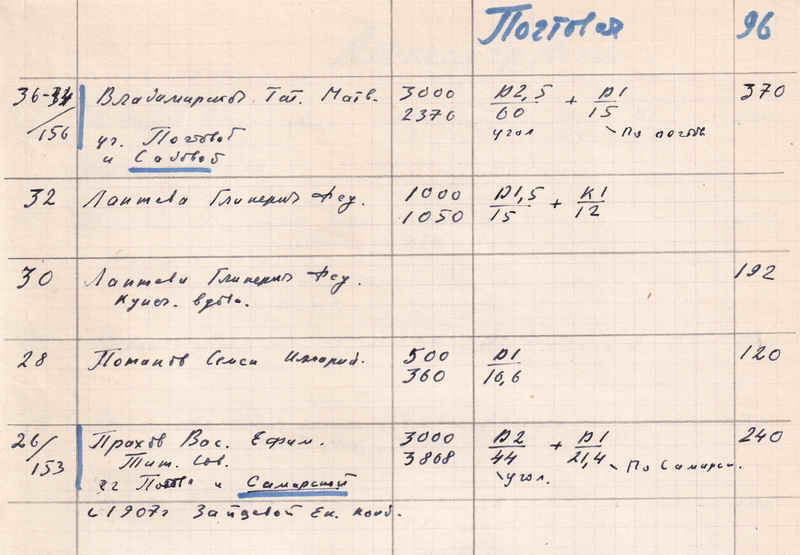 Почтовая 96
36-34 Владимирской Тат. Матв. 3000 Д2,5 + Д1 370
/156 2370 60 15
уг. Почтовой угол По почтов
и Садовой
32 Лаптева Гликерия Фед. 1000 Д1,5 + К1
1050 15 12
30 Лаптева Гликерия Фед. 192
Купеч. вдова.
28 Потапов Семен 500 Д1 120
360 16,6
26/ Прахов Вас. Ефим. 3000 Д2 + Д1 240
153 Тит. Сов. 3868 44 21,4 По Самарск.
уг Почтов и Самарской угол.
с 1907г Зайцевой Ек. Конд.